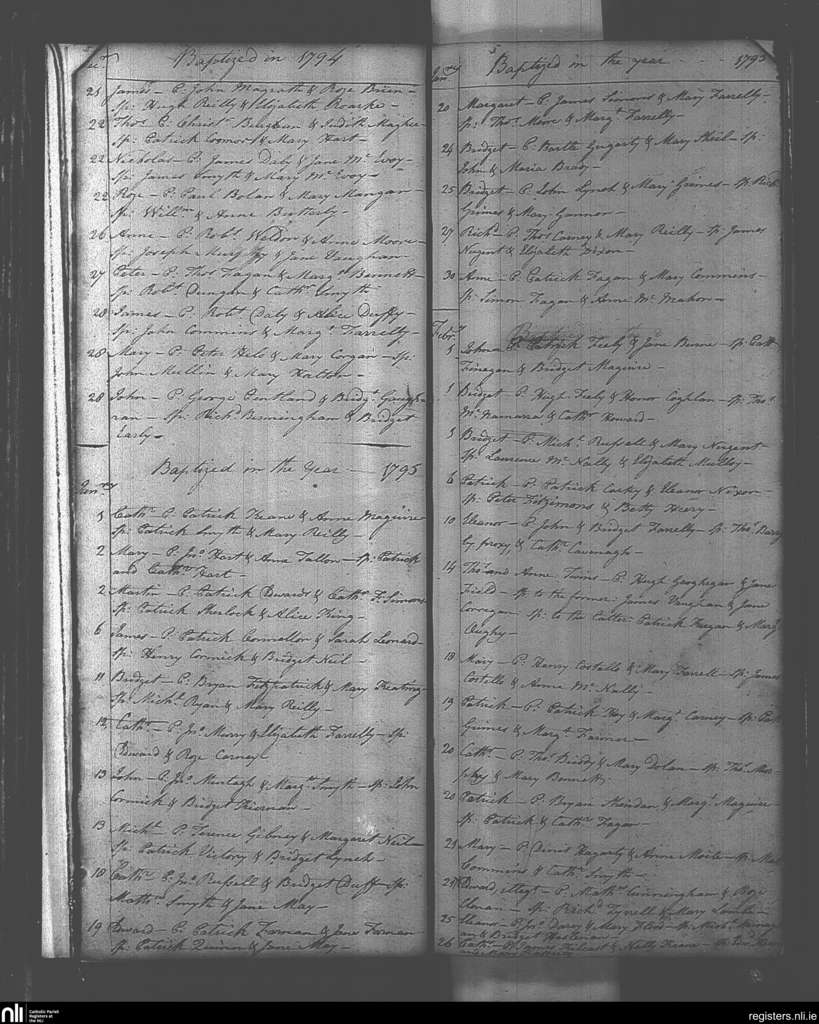 Baptized in 1794
21 James - P. John Magrath & Rose Brien -
Sp: Hugh Reilly & Elizabeth Roarke -
22 Thos P. Christr & Judith Maghee
Sp: Patrick & Mary Hart -
22 Nicholas - P. James Daly & Jane Mc Evoy -
Sp: James Smyth & Mary Mc Evoy -
22 Rose - P. Paul Bolan & Mary Mangan -
Sp: Willm & Anne Butterly -
26 Anne - P. Robt Weldon & Anne Moore -
Sp: Joseph Murphy & Jane Vaughan -
27 Peter - P. Thos Fagan & Margt Bennett -
Sp: Robt Dungan & Cathn Smyth
28 James - P. Robt Daly & Alice Duffy -
Sp: John Commins & Margt Farrelly -
28 Mary - P. Peter & Mary Corgan - Sp:
John Mullin & Mary Hatton -
28 John - P. George Pentland & Bridgt Gaugh-
ran - Sp: Richd Birmingham & Bridget
Early -
Baptized in the Year - 1795
Janry
1 Cathn P. Patrick Keane & Anne Maguire
Sp: Patrick Smyth & Mary Reilly -
2 Mary - P. Jno Hart & Anna Fallon - Sp: Patrick
and Cathn Hart -
2 Martin - P. Patrick Edwards & Cathn F. Simons
Sp: Patrick Sherlock & Alice King -
6 James - P. Patrick Connallon & Sarah Leonard -
Sp: Henry Cormick & Bridget Neil -
11 Bridget - P. Bryan Fitzpatrick & Mary Keating -
Sp: Michl Ryan & Mary Reilly -
12 Cathn - P. Jno Merry & Elizabeth Farrelly - Sp:
Edward & Rose Carney -
13 John - P. Jno Murtagh & Margt Smyth - Sp: John
Cormick & Bridget Kiernan -
13 Michl P. Terence Gibney & Margaret Neil -
Sp: Patrick Victory & Bridget Lynch -
18 Cathn P. Jno Russell & Bridget Duff - Sp:
Matthw Smyth & Jane May -
19 Edward - P. Patrick Farnan & Jane Farnan -
Sp: Patrick Quinn & Jane May -
Baptized in the year - - - 1795
Janry
20 Margaret - P. James Simons & Mary Farrelly -
Sp: Thos Moore & Margt Farrelly -
24 Bridget - P. Bartle & Mary Sheil - Sp:
John & Maria Brady -
25 Bridget - P. John Lynch & Mary Grimes - Sp: Richd
Grimes & Mary Gannon -
27 Richd - P. Thos Carney & Mary Reilly - Sp: James
Nugent & Elizabeth Dixon -
30 Anne - P. Patrick Fagan & Mary Commins -
Sp: Simon Fagan & Anne Mc Mahon -
Febry
1 John P. Patrick Feely & Jane Birne - Sp: Patt
Finegan & Bridget Maguire -
1 Bridget - P. Hugh Feely & Honor Coghlan - Sp: Thos
Mc Namara & Cathn Howard -
5 Bridget - P. Michl Russell & Mary Nugent
Sp: Laurence Mc Nally & Elizabeth Mulloy -
6 Patrick - P. Patrick & Eleanor Nixon -
Sp: Peter Fitzimons & Betty Heery -
10 Eleanor - P. John & Bridget Farrelly - Sp: Thos Darcy
by proxy, & Cathn Cavenagh -
14 Thos and Anne Twins - P. Hugh Geoghegan & Jane
Field - Sp to the former: James Vaughan & Jane
Corregan: Sp: to the latter: Patrick Keegan & Margt
18 Mary - P. Henry Costello & Mary Farrell - Sp: James
Costello & Anne Mc Nally -
19 Patrick - P. Patrick Hoy & Margt Carney - Sp: Patk
Grimes & Margt Farmer -
20 Cathn - P. Thos Briddy & Mary Dolan - Sp: Thos Mur-
phy & Mary Bennett;
20 Patrick - P. Bryan Sheridan & Margt Maguire -
Sp: Patrick & Cathn Fagan -
23 Mary - P. Denis Hagarty & Anne
Commins & Cathn Smyth -
25 Edward P. Matthw Cunningham & Rose
- Sp: Richd Tyrrell & Mary
25 P. Jno Darcy & Mary - Sp: Michl
& Bridget
26 Cathn - P. James & Nelly Keane - Sp:
nli
Catholic Parish
Registers at
the NLI
registers.nli.ie